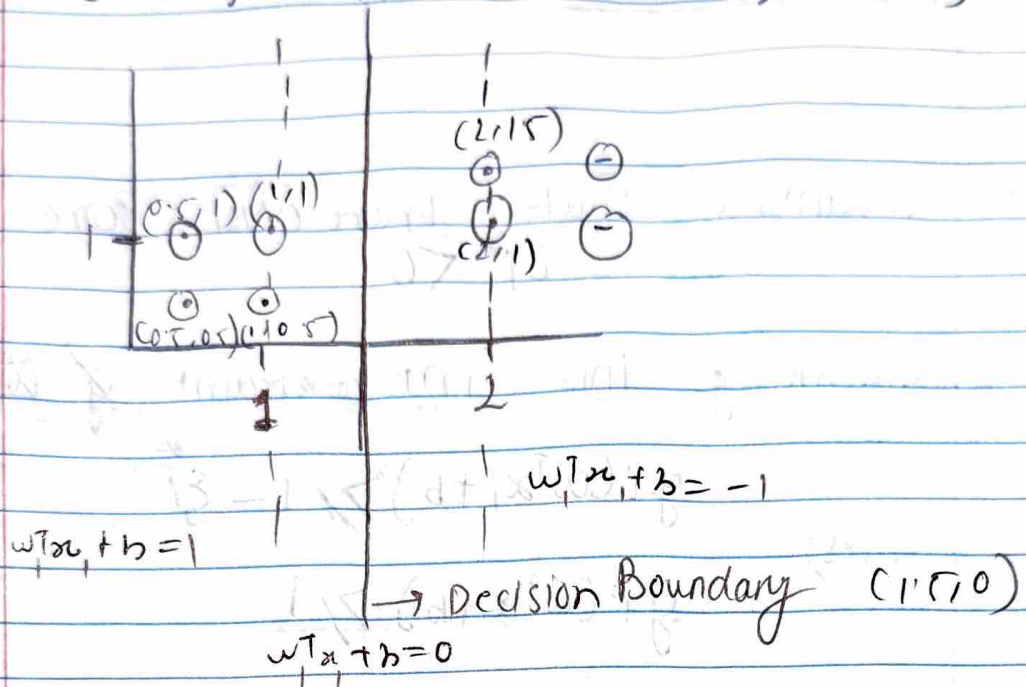 (2,1.5)
(0.5,1) (1,1)
1
(2,1)
(0.5,0.5) (1,0.5)
1 2
wᵀx₁ + b = -1
wᵀx₁ + b = 1
→ Decision Boundary (1.5,0)
wᵀx + b = 0